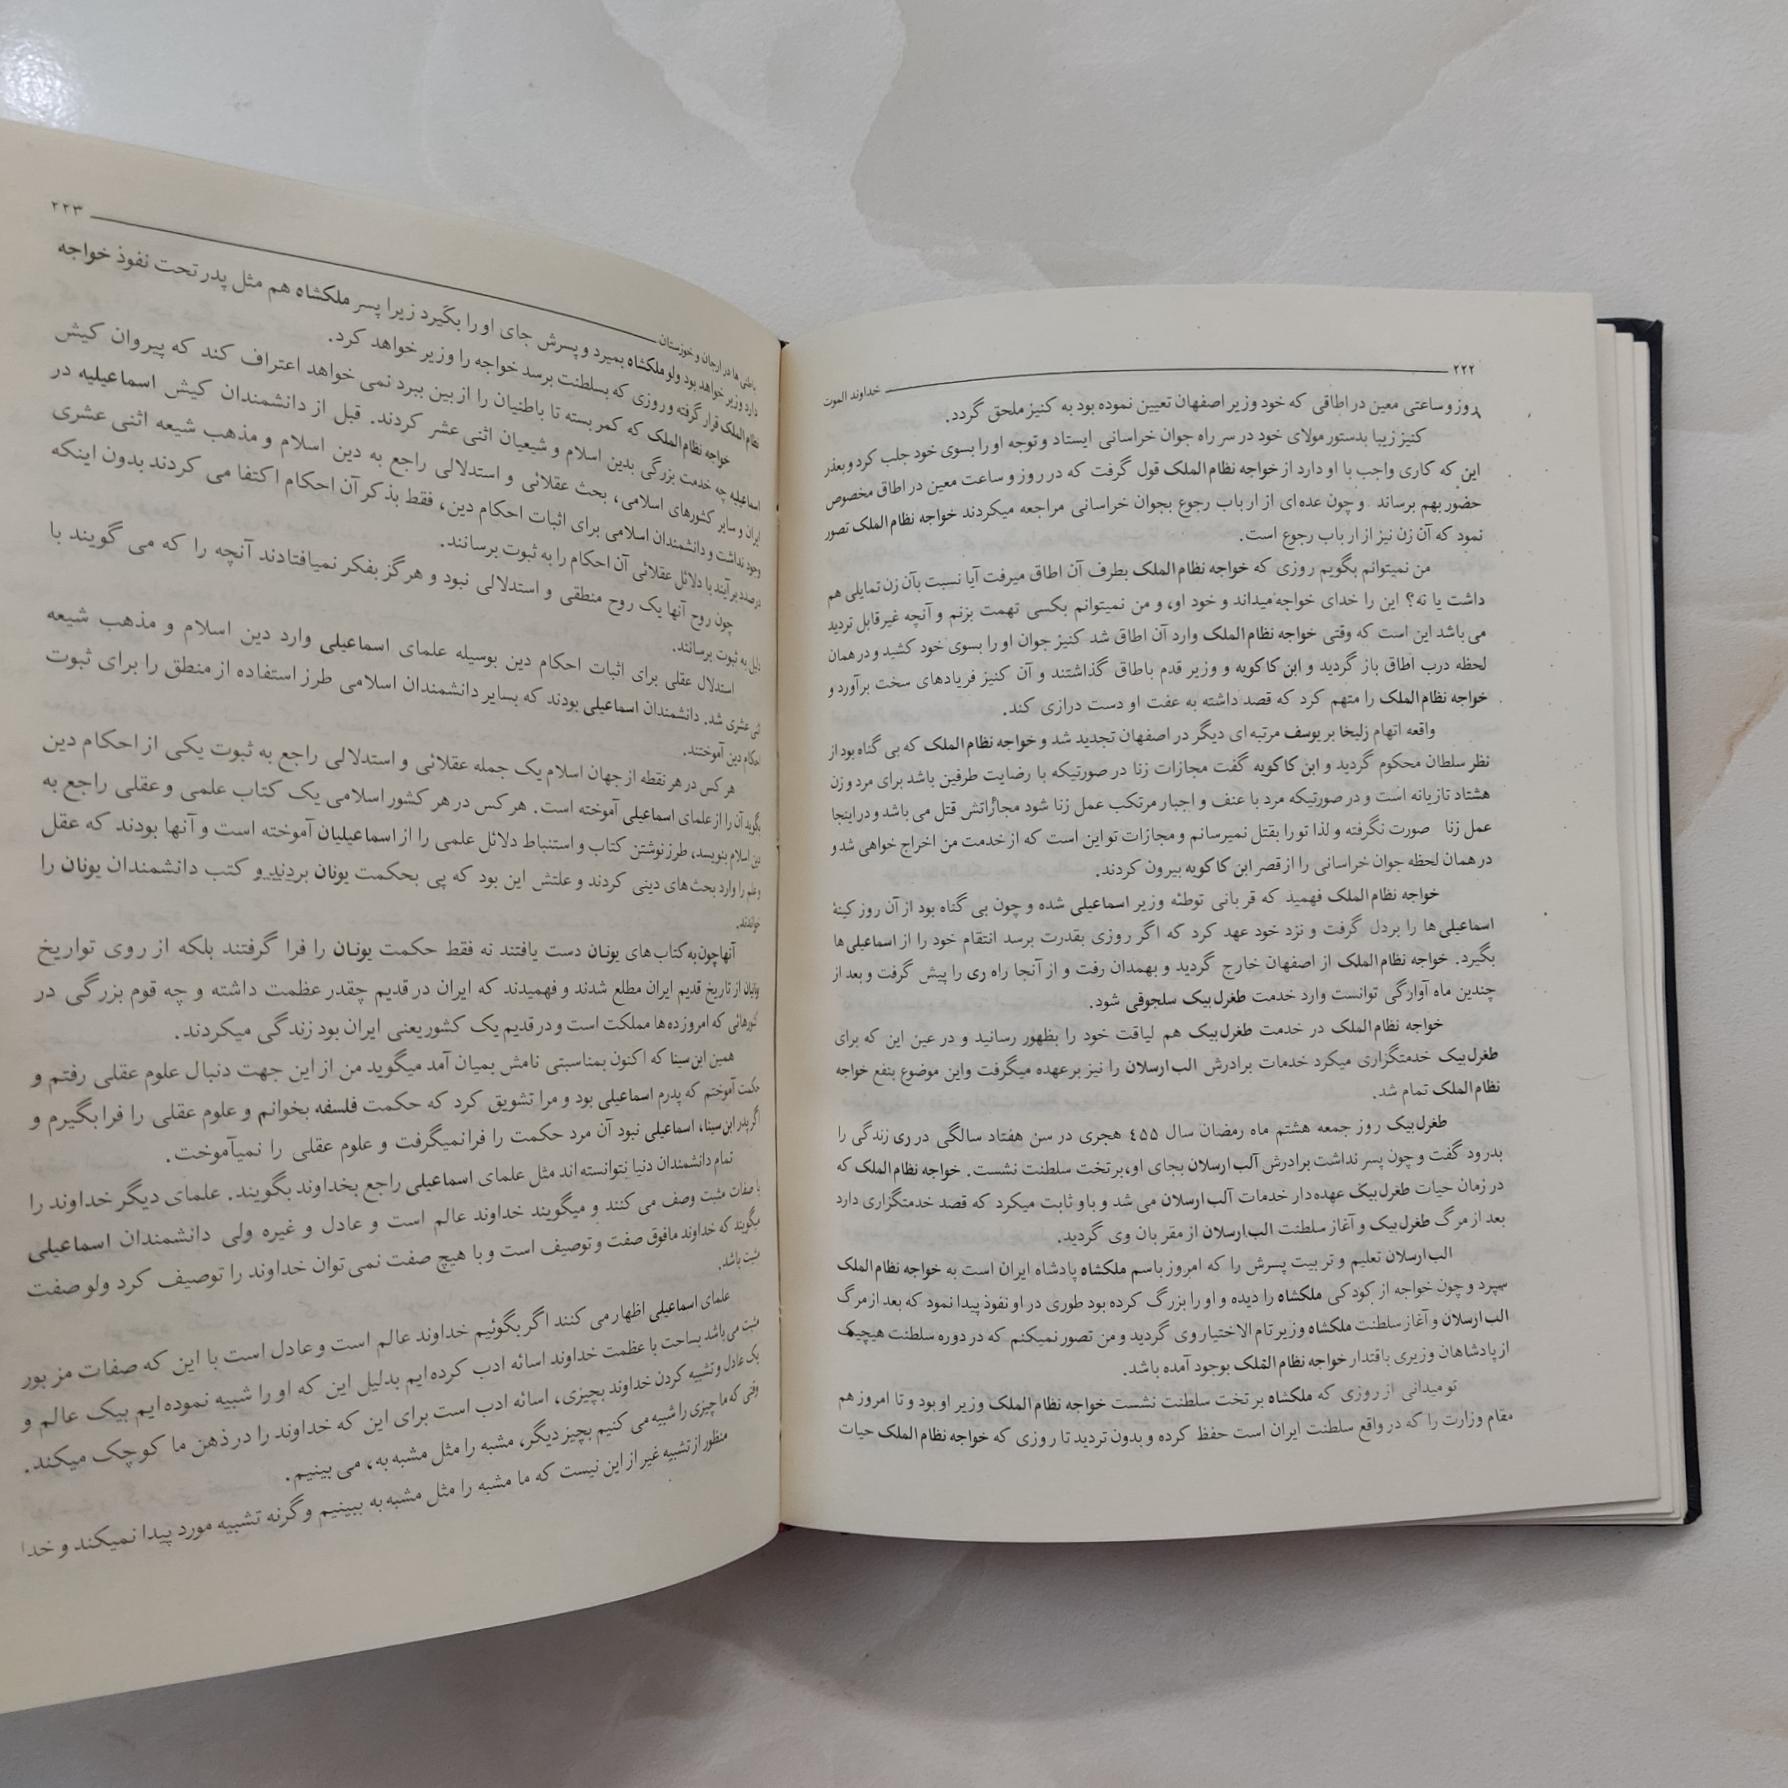 ۲۲۲
خداوند الموت
روز و ساعتی معین در اطاقی که خود وزیر اصفهان تعیین نموده بود به کنیز ملحق گردد.
کنیز زیبا بدستور مولای خود در سر راه جوان خراسانی ایستاد و توجه او را بسوی خود جلب کرد و بعذر
این که کاری واجب با او دارد از خواجه نظام الملک قول گرفت که در روز و ساعت معین در اطاق مخصوص
حضور بهم برساند و چون عده ای از ارباب رجوع بجوان خراسانی مراجعه میکردند خواجه نظام الملک تصور
نمود که آن زن نیز از ارباب رجوع است.
من نمیتوانم بگویم روزی که خواجه نظام الملک بطرف آن اطاق میرفت آیا نسبت بآن زن تمایلی هم
داشت یا نه؟ این را خدای خواجه میداند و خود او، و من نمیتوانم بکسی تهمت بزنم و آنچه غیر قابل تردید
می باشد این است که وقتی خواجه نظام الملک وارد آن اطاق شد کنیز جوان او را بسوی خود کشید و در همان
لحظه درب اطاق باز گردید و ابن کاکویه و وزیر قدم باطاق گذاشتند و آن کنیز فریادهای سخت برآورد و
خواجه نظام الملک را متهم کرد که قصد داشته به عفت او دست درازی کند.
واقعه اتهام زلیخا بر یوسف مرتبه ای دیگر در اصفهان تجدید شد و خواجه نظام الملک که بی گناه بود از
نظر سلطان محکوم گردید و ابن کاکویه گفت مجازات زنا در صورتیکه با رضایت طرفین باشد برای مرد و زن
هشتاد تازیانه است و در صورتیکه مرد با عنف و اجبار مرتکب عمل زنا شود مجازاتش قتل می باشد و در اینجا
عمل زنا صورت نگرفته و لذا تو را بقتل نمیرسانم و مجازات تو این است که از خدمت من اخراج خواهی شد و
در همان لحظه جوان خراسانی را از قصر ابن کاکویه بیرون کردند.
خواجه نظام الملک فهمید که قربانی توطئه وزیر اسماعیلی شده و چون بی گناه بود از آن روز کینهٔ
اسماعیلی ها را بردل گرفت و نزد خود عهد کرد که اگر روزی بقدرت برسد انتقام خود را از اسماعیلی ها
بگیرد. خواجه نظام الملک از اصفهان خارج گردید و بهمدان رفت و از آنجا راه ری را پیش گرفت و بعد از
چندین ماه آوارگی توانست وارد خدمت طغرل بیک سلجوقی شود.
خواجه نظام الملک در خدمت طغرل بیک هم لیاقت خود را بظهور رسانید و در عین این که برای
طغرل بیک خدمتگزاری میکرد خدمات برادرش الب ارسلان را نیز بر عهده میگرفت و این موضوع بنفع خواجه
نظام الملک تمام شد.
طغرل بیک روز جمعه هشتم ماه رمضان سال ۴۵۵ هجری در سن هفتاد سالگی در ری زندگی را
بدرود گفت و چون پسر نداشت برادرش آلب ارسلان بجای او، بر تخت سلطنت نشست. خواجه نظام الملک که
در زمان حیات طغرل بیک عهده دار خدمات آلب ارسلان می شد و باو ثابت میکرد که قصد خدمتگزاری دارد
بعد از مرگ طغرل بیک و آغاز سلطنت الب ارسلان از مقربان وی گردید.
الب ارسلان تعلیم و تربیت پسرش را که امروز باسم ملکشاه پادشاه ایران است به خواجه نظام الملک
سپرد و چون خواجه از کودکی ملکشاه را دیده و او را بزرگ کرده بود طوری در او نفوذ پیدا نمود که بعد از مرگ
الب ارسلان و آغاز سلطنت ملکشاه وزیر تام الاختیار وی گردید و من تصور نمیکنم که در دوره سلطنت هیچیک
از پادشاهان وزیری باقتدار خواجه نظام الملک بوجود آمده باشد.
تو میدانی از روزی که ملکشاه بر تخت سلطنت نشست خواجه نظام الملک وزیر او بود و تا امروز هم
مقام وزارت را که در واقع سلطنت ایران است حفظ کرده و بدون تردید تا روزی که خواجه نظام الملک حیات
باطنی ها در ارجان و خوزستان
۲۲۳
دارد وزیر خواهد بود ولو ملکشاه بمیرد و پسرش جای او را بگیرد زیرا پسر ملکشاه هم مثل پدر تحت نفوذ خواجه
نظام الملک قرار گرفته و روزی که بسلطنت برسد خواجه را وزیر خواهد کرد.
خواجه نظام الملک که کمر بسته تا باطنیان را از بین ببرد نمی خواهد اعتراف کند که پیروان کیش
اسماعیلیه چه خدمت بزرگی بدین اسلام و شیعیان اثنی عشر کردند. قبل از دانشمندان کیش اسماعیلیه در
ایران و سایر کشورهای اسلامی، بحث عقلائی و استدلالی راجع به دین اسلام و مذهب شیعه اثنی عشری
وجود نداشت و دانشمندان اسلامی برای اثبات احکام دین، فقط بذکر آن احکام اکتفا می کردند بدون اینکه
درصدد برآیند با دلائل عقلائی آن احکام را به ثبوت برسانند.
چون روح آنها یک روح منطقی و استدلالی نبود و هرگز بفکر نمیافتادند آنچه را که می گویند با
دلیل به ثبوت برسانند.
استدلال عقلی برای اثبات احکام دین بوسیله علمای اسماعیلی وارد دین اسلام و مذهب شیعه
اثنی عشری شد. دانشمندان اسماعیلی بودند که بسایر دانشمندان اسلامی طرز استفاده از منطق را برای ثبوت
احکام دین آموختند.
هر کس در هر نقطه از جهان اسلام یک جمله عقلائی و استدلالی راجع به ثبوت یکی از احکام دین
بگوید آن را از علمای اسماعیلی آموخته است. هر کس در هر کشور اسلامی یک کتاب علمی و عقلی راجع به
دین اسلام بنویسد، طرز نوشتن کتاب و استنباط دلائل علمی را از اسماعیلیان آموخته است و آنها بودند که عقل
و علم را وارد بحث های دینی کردند و علتش این بود که پی بحکمت یونان بردند و کتب دانشمندان یونان را
خواندند.
آنها چون به کتاب های یونان دست یافتند نه فقط حکمت یونان را فرا گرفتند بلکه از روی تواریخ
یونیان از تاریخ قدیم ایران مطلع شدند و فهمیدند که ایران در قدیم چقدر عظمت داشته و چه قوم بزرگی در
کشورهائی که امروز ده ها مملکت است و در قدیم یک کشور یعنی ایران بود زندگی میکردند.
همین ابن سینا که اکنون بمناسبتی نامش بمیان آمد میگوید من از این جهت دنبال علوم عقلی رفتم و
حکمت آموختم که پدرم اسماعیلی بود و مرا تشویق کرد که حکمت فلسفه بخوانم و علوم عقلی را فرا بگیرم و
اگر پدر ابن سینا، اسماعیلی نبود آن مرد حکمت را فرا نمیگرفت و علوم عقلی را نمیآموخت.
تمام دانشمندان دنیا نتوانسته اند مثل علمای اسماعیلی راجع بخداوند بگویند. علمای دیگر خداوند را
با صفات مثبت وصف می کنند و میگویند خداوند عالم است و عادل و غیره ولی دانشمندان اسماعیلی
میگویند که خداوند مافوق صفت و توصیف است و با هیچ صفت نمی توان خداوند را توصیف کرد ولو صفت
مثبت باشد.
علمای اسماعیلی اظهار می کنند اگر بگوئیم خداوند عالم است و عادل است با این که صفات مزبور
مثبت می باشد بساحت با عظمت خداوند اسائه ادب کرده ایم بدلیل این که او را شبیه نموده ایم بیک عالم و
یک عادل و تشبیه کردن خداوند بچیزی، اسائه ادب است برای این که خداوند را در ذهن ما کوچک میکند.
وقتی که ما چیزی را شبیه می کنیم بچیز دیگر، مشبه را مثل مشبه به، می بینیم.
منظور از تشبیه غیر از این نیست که ما مشبه را مثل مشبه به ببینیم و گرنه تشبیه مورد پیدا نمیکند و خدا